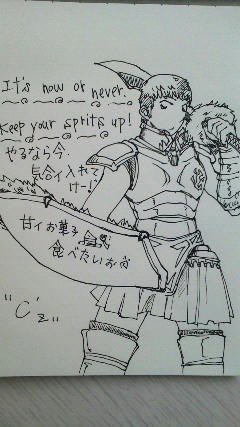 It's now or never.
Keep your sprits up!
やるなら今.
気合イ入れて
けー!
甘イお菓子
食べたいお
"C'z"